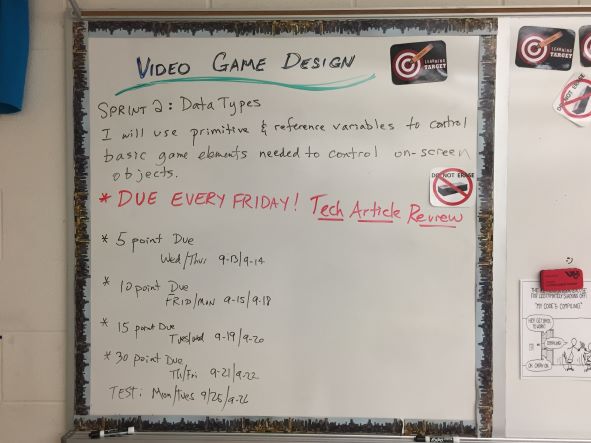 VIDEO GAME DESIGN
LEARNING
TARGET
SPRINT 2: DATA TYPES
I will use primitive & reference variables to control
basic game elements needed to control on-screen
objects.
DO NOT ERASE
* DUE EVERY FRIDAY! Tech Article Review
* 5 point Due
Wed/Thur 9-13/9-14
* 10 point Due
FRID/MON 9-15/9-18
* 15 point Due
Tues/wed 9-19/9-20
* 30 point Due
Th/Fri 9-21/9-22
TEST: Mon/Tues 9/25/9-26
LEARNING
TARGET
NOT ERASE
"MY CODE'S COMPILING."
COMPILING!